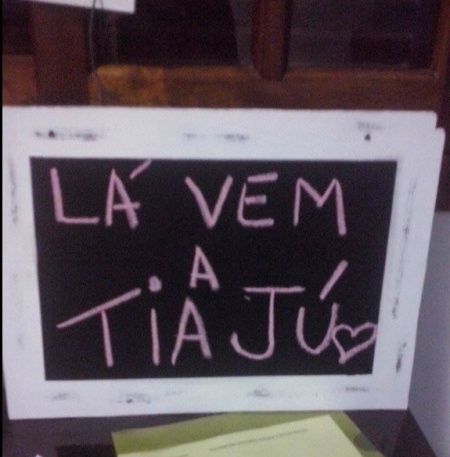 LÁ VEM
A
TiA JÚ